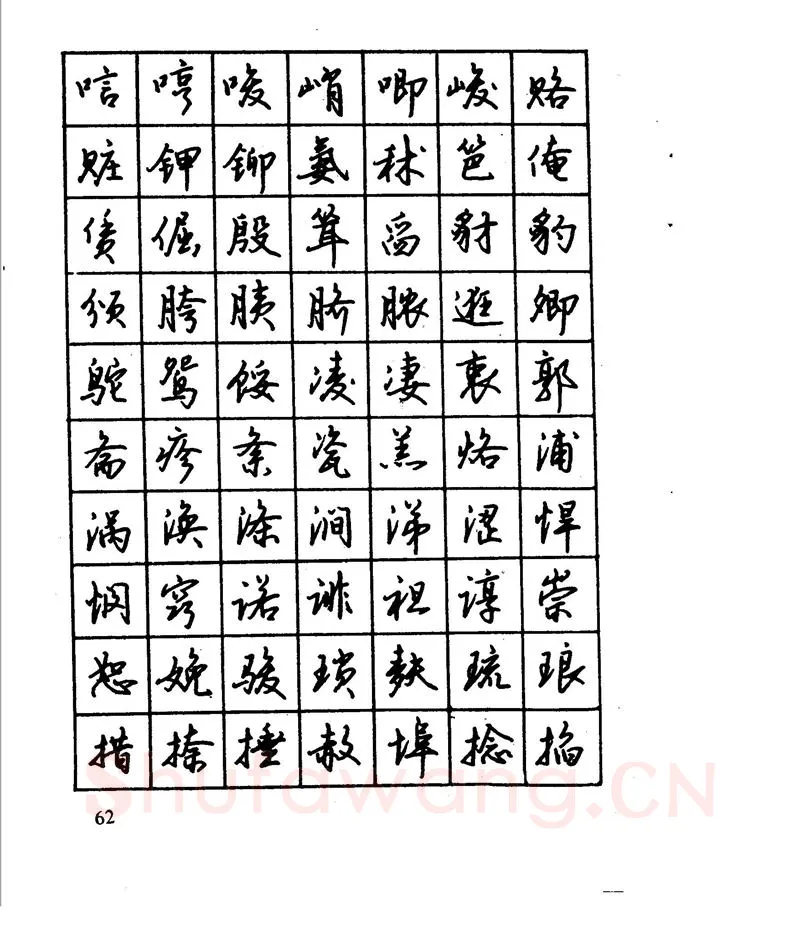 唁哼唆峭唧峻赂
赃钾铆氨秫笆俺
赁倔殷耸舀豺豹
颁胯胰脐脓逛卿
鸵鸳馁凌凄衷郭
斋疹紊瓷羔烙浦
涡涣涤涧涕涩悍
悯窍诺诽袒谆祟
恕娩骏琐麸琉琅
措捺捶赦埠捻掐
shufawang.CN
62